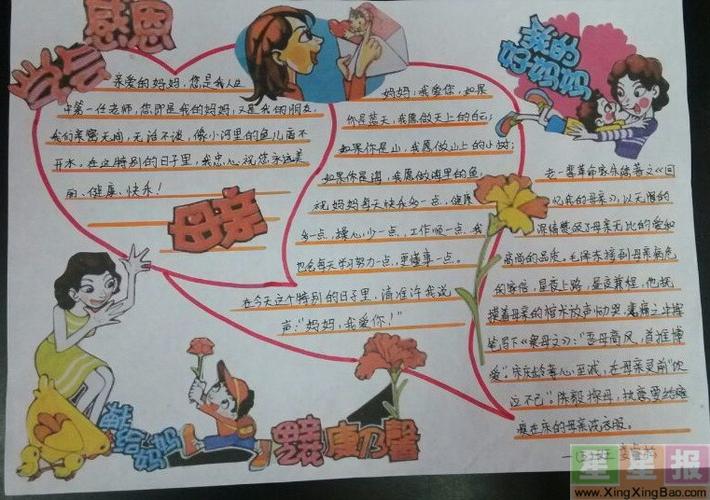 学会
感恩
亲爱的妈妈,您是我人生
中第一任老师,您即是我的妈妈,又是我的朋友,
我们亲密无间,无话不谈,像小河里的鱼儿离不
开水,在这特别的日子里,我忠心祝您永远美
丽、健康、快乐!
母亲
妈妈,我爱您,如果
你是蓝天,我愿做天上的白云;
如果你是山,我愿做山上的小树;
如果你是海,我愿做海里的鱼,
祝妈妈每天快乐多一点,健康
多一点,操心少一点,工作顺一点,我
也会每天学习努力一点,更懂事一点。
在今天这个特别的日子里,请准许我说
声:“妈妈,我爱你!”
我的
好妈妈
老一辈革命家朱德著文《回
忆我的母亲》,以无限的
深情赞颂了母亲无比的爱和
高尚的品质。毛泽东接到母亲病危
的家信,星夜上路,昼夜兼程,他抚
摸着母亲的棺木放声恸哭,悲痛之中挥
笔写下《祭母文》:“吾母高风,首推博
爱。”宋庆龄善心至诚,在母亲灵前“饮
泣不已”。陈毅探母,执意要给瘫
痪在床的母亲洗衣服。
献给
妈妈
康乃馨
星星报
www.XingXingBao.com